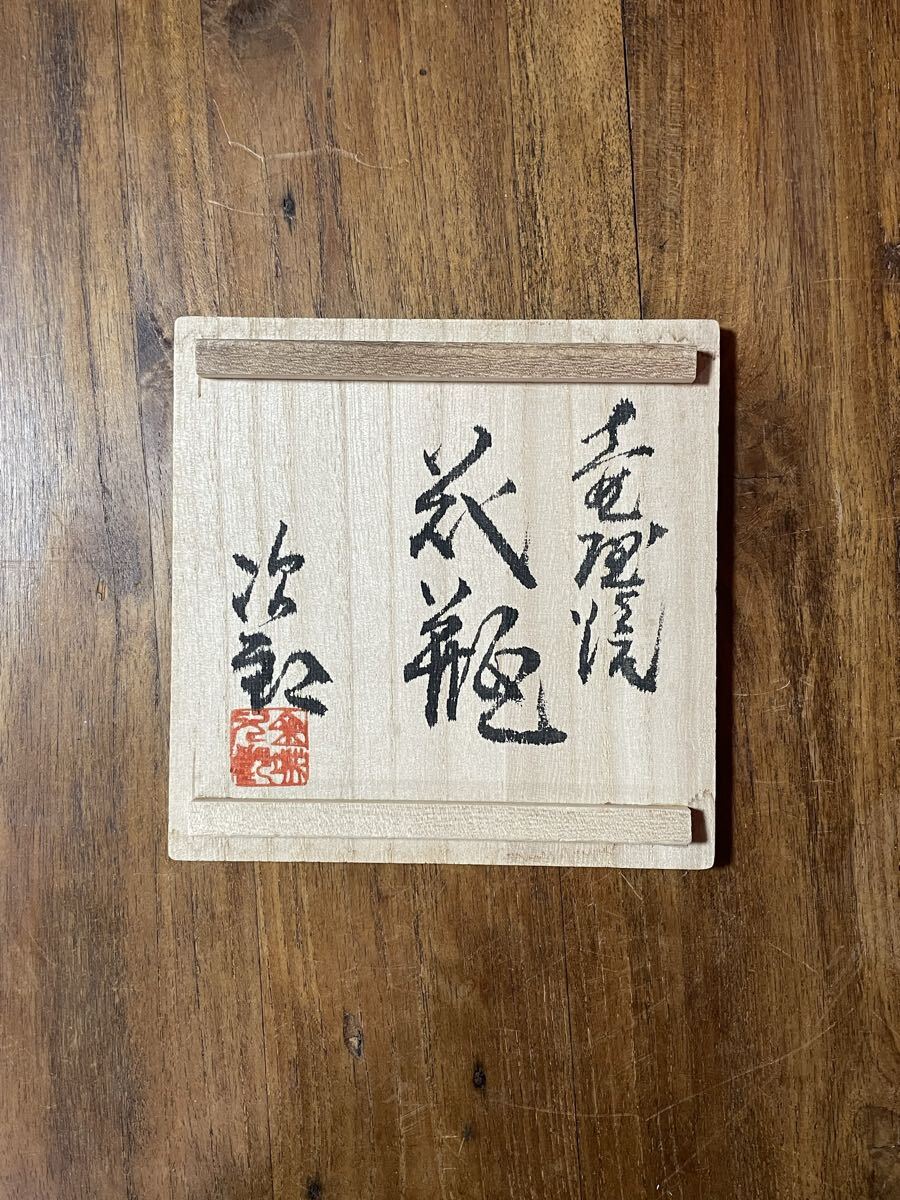 壺屋焼
花瓶
次郎